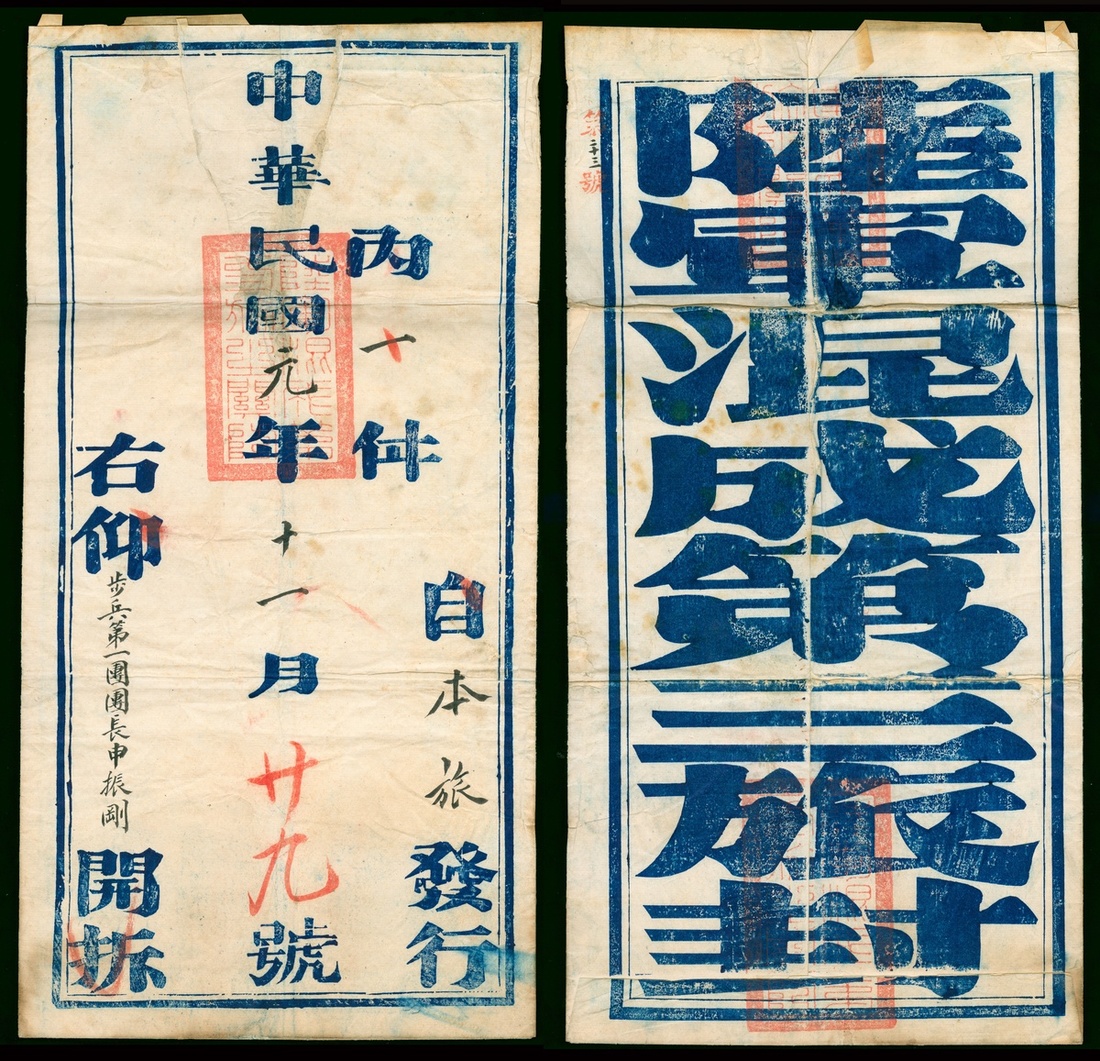 自本旅發行
內一件
中華民國元年十一月廿九號
右仰步兵第一團團長申振剛開拆
陸軍混成第三旅封
第廿三號